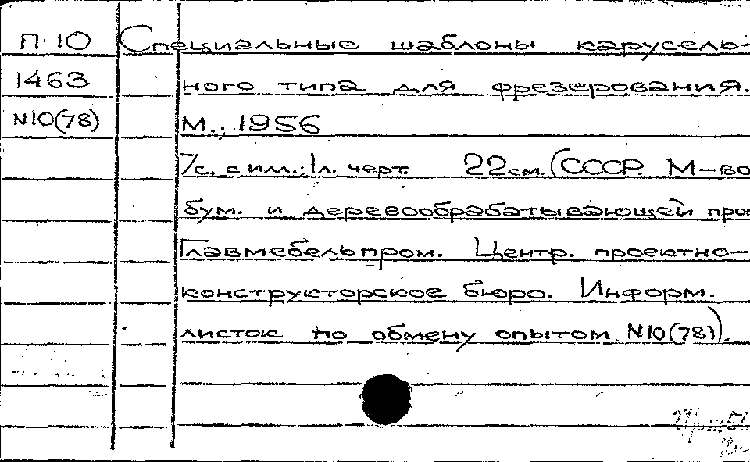 П-10 Специальные шаблоны карусель-
1463 ного типа для фрезерования.
N10(78) М., 1956
7с. с илл.; 1л. черт. 22см. (СССР. М-во
бум. и деревообрабатывающей про
Главмебельпром. Центр. проектно-
конструкторское бюро. Информ.
листок по обмену опытом N10(78)).